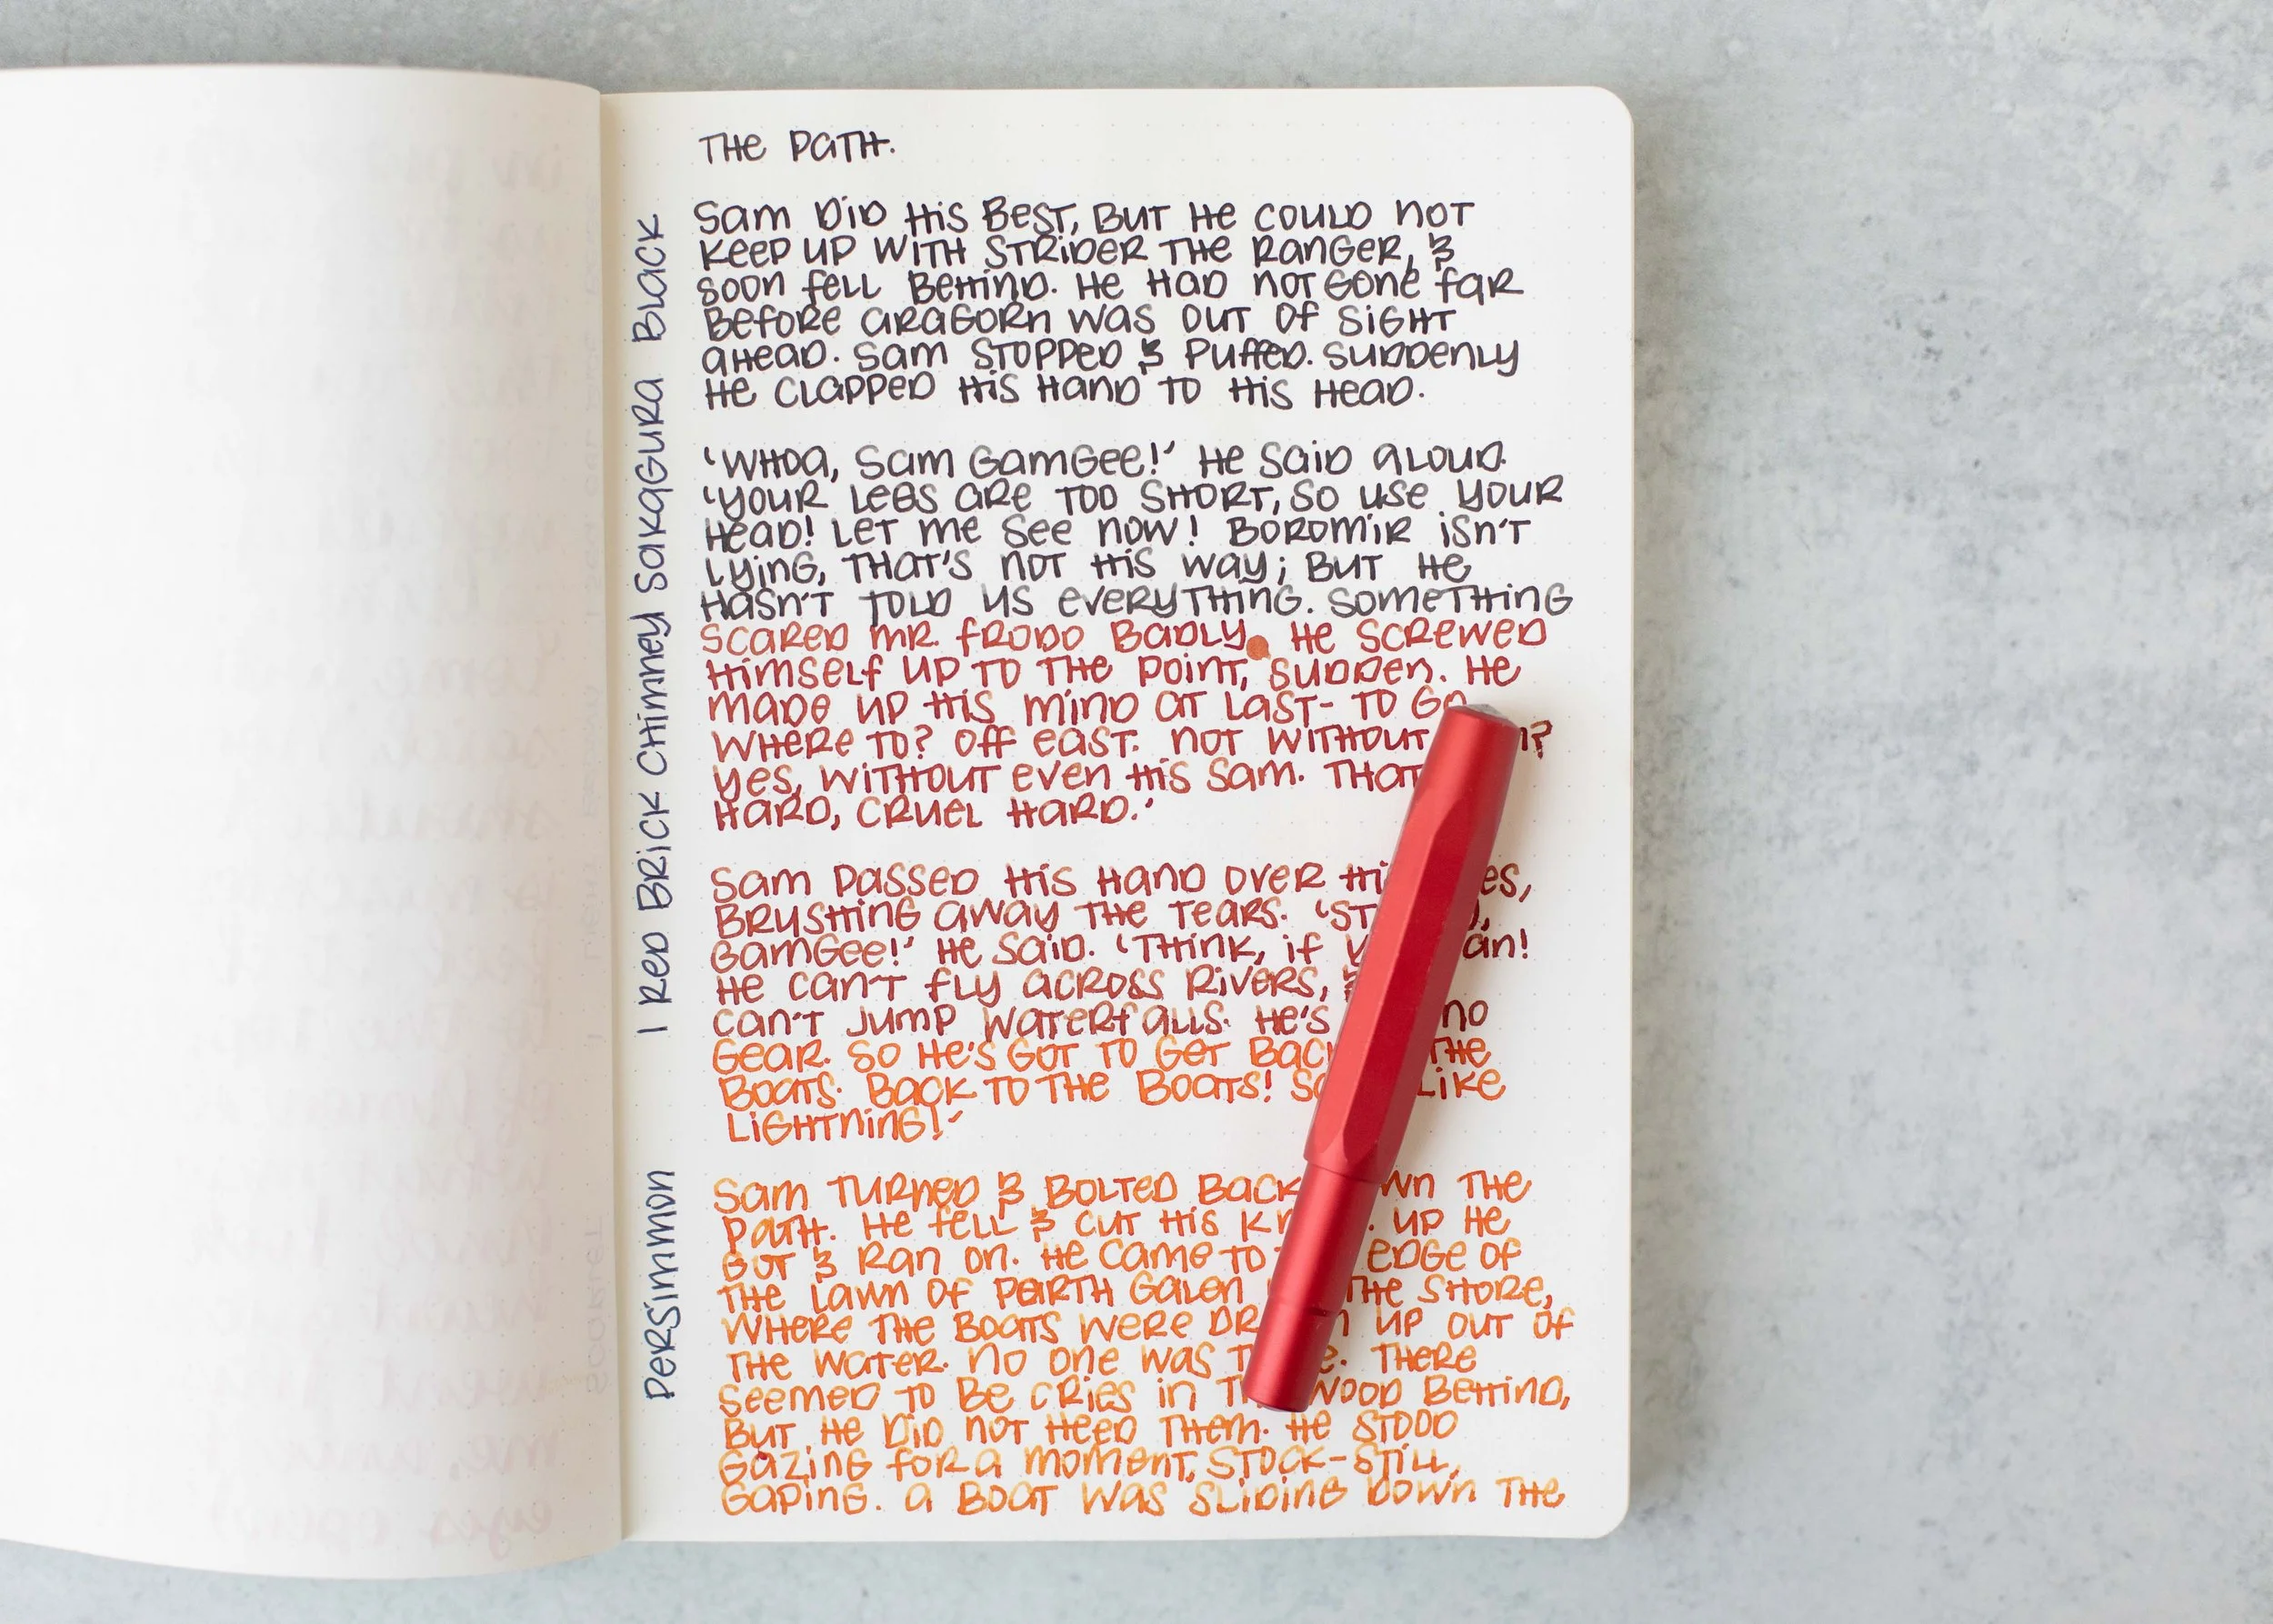 THE PATH.
SAM DID HIS BEST, BUT HE COULD NOT
KEEP UP WITH STRIDER THE RANGER, &
SOON FELL BEHIND. HE HAD NOT GONE FAR
BEFORE ARAGORN WAS OUT OF SIGHT
AHEAD. SAM STOPPED & PUFFED. SUDDENLY
HE CLAPPED HIS HAND TO HIS HEAD.
'WHOA, SAM GAMGEE!' HE SAID ALOUD.
'YOUR LEGS ARE TOO SHORT, SO USE YOUR
HEAD! LET ME SEE NOW! BOROMIR ISN'T
LYING, THAT'S NOT HIS WAY; BUT HE
HASN'T TOLD US EVERYTHING. SOMETHING
SCARED MR. FRODO BADLY. HE SCREWED
HIMSELF UP TO THE POINT, SUDDEN. HE
MADE UP HIS MIND AT LAST- TO GO
WHERE TO? OFF EAST. NOT WITHOUT
YES, WITHOUT EVEN HIS SAM. THAT
HARD, CRUEL HARD.'
SAM PASSED HIS HAND OVER
BRUSHING AWAY THE TEARS.
GAMGEE!' HE SAID. 'THINK, IF
HE CAN'T FLY ACROSS RIVERS, &
CAN'T JUMP WATERFALLS. HE'S NO
GEAR. SO HE'S GOT TO GET THE
BOATS. BACK TO THE BOATS! LIKE
LIGHTNING!'
SAM TURNED & BOLTED BACK THE
PATH. HE FELL & CUT HIS UP HE
GOT & RAN ON. HE CAME TO EDGE OF
THE LAWN OF PARTH GALEN THE SHORE,
WHERE THE BOATS WERE UP OUT OF
THE WATER. NO ONE WAS THERE
SEEMED TO BE CRIES IN WOOD BEHIND,
BUT HE DID NOT HEED THEM. HE STOOD
GAZING FOR A MOMENT, STOCK-STILL,
GAPING. A BOAT WAS SLIDING DOWN THE
1 RED BRICK CHIMNEY SAKAGURA BLACK
PERSIMMON